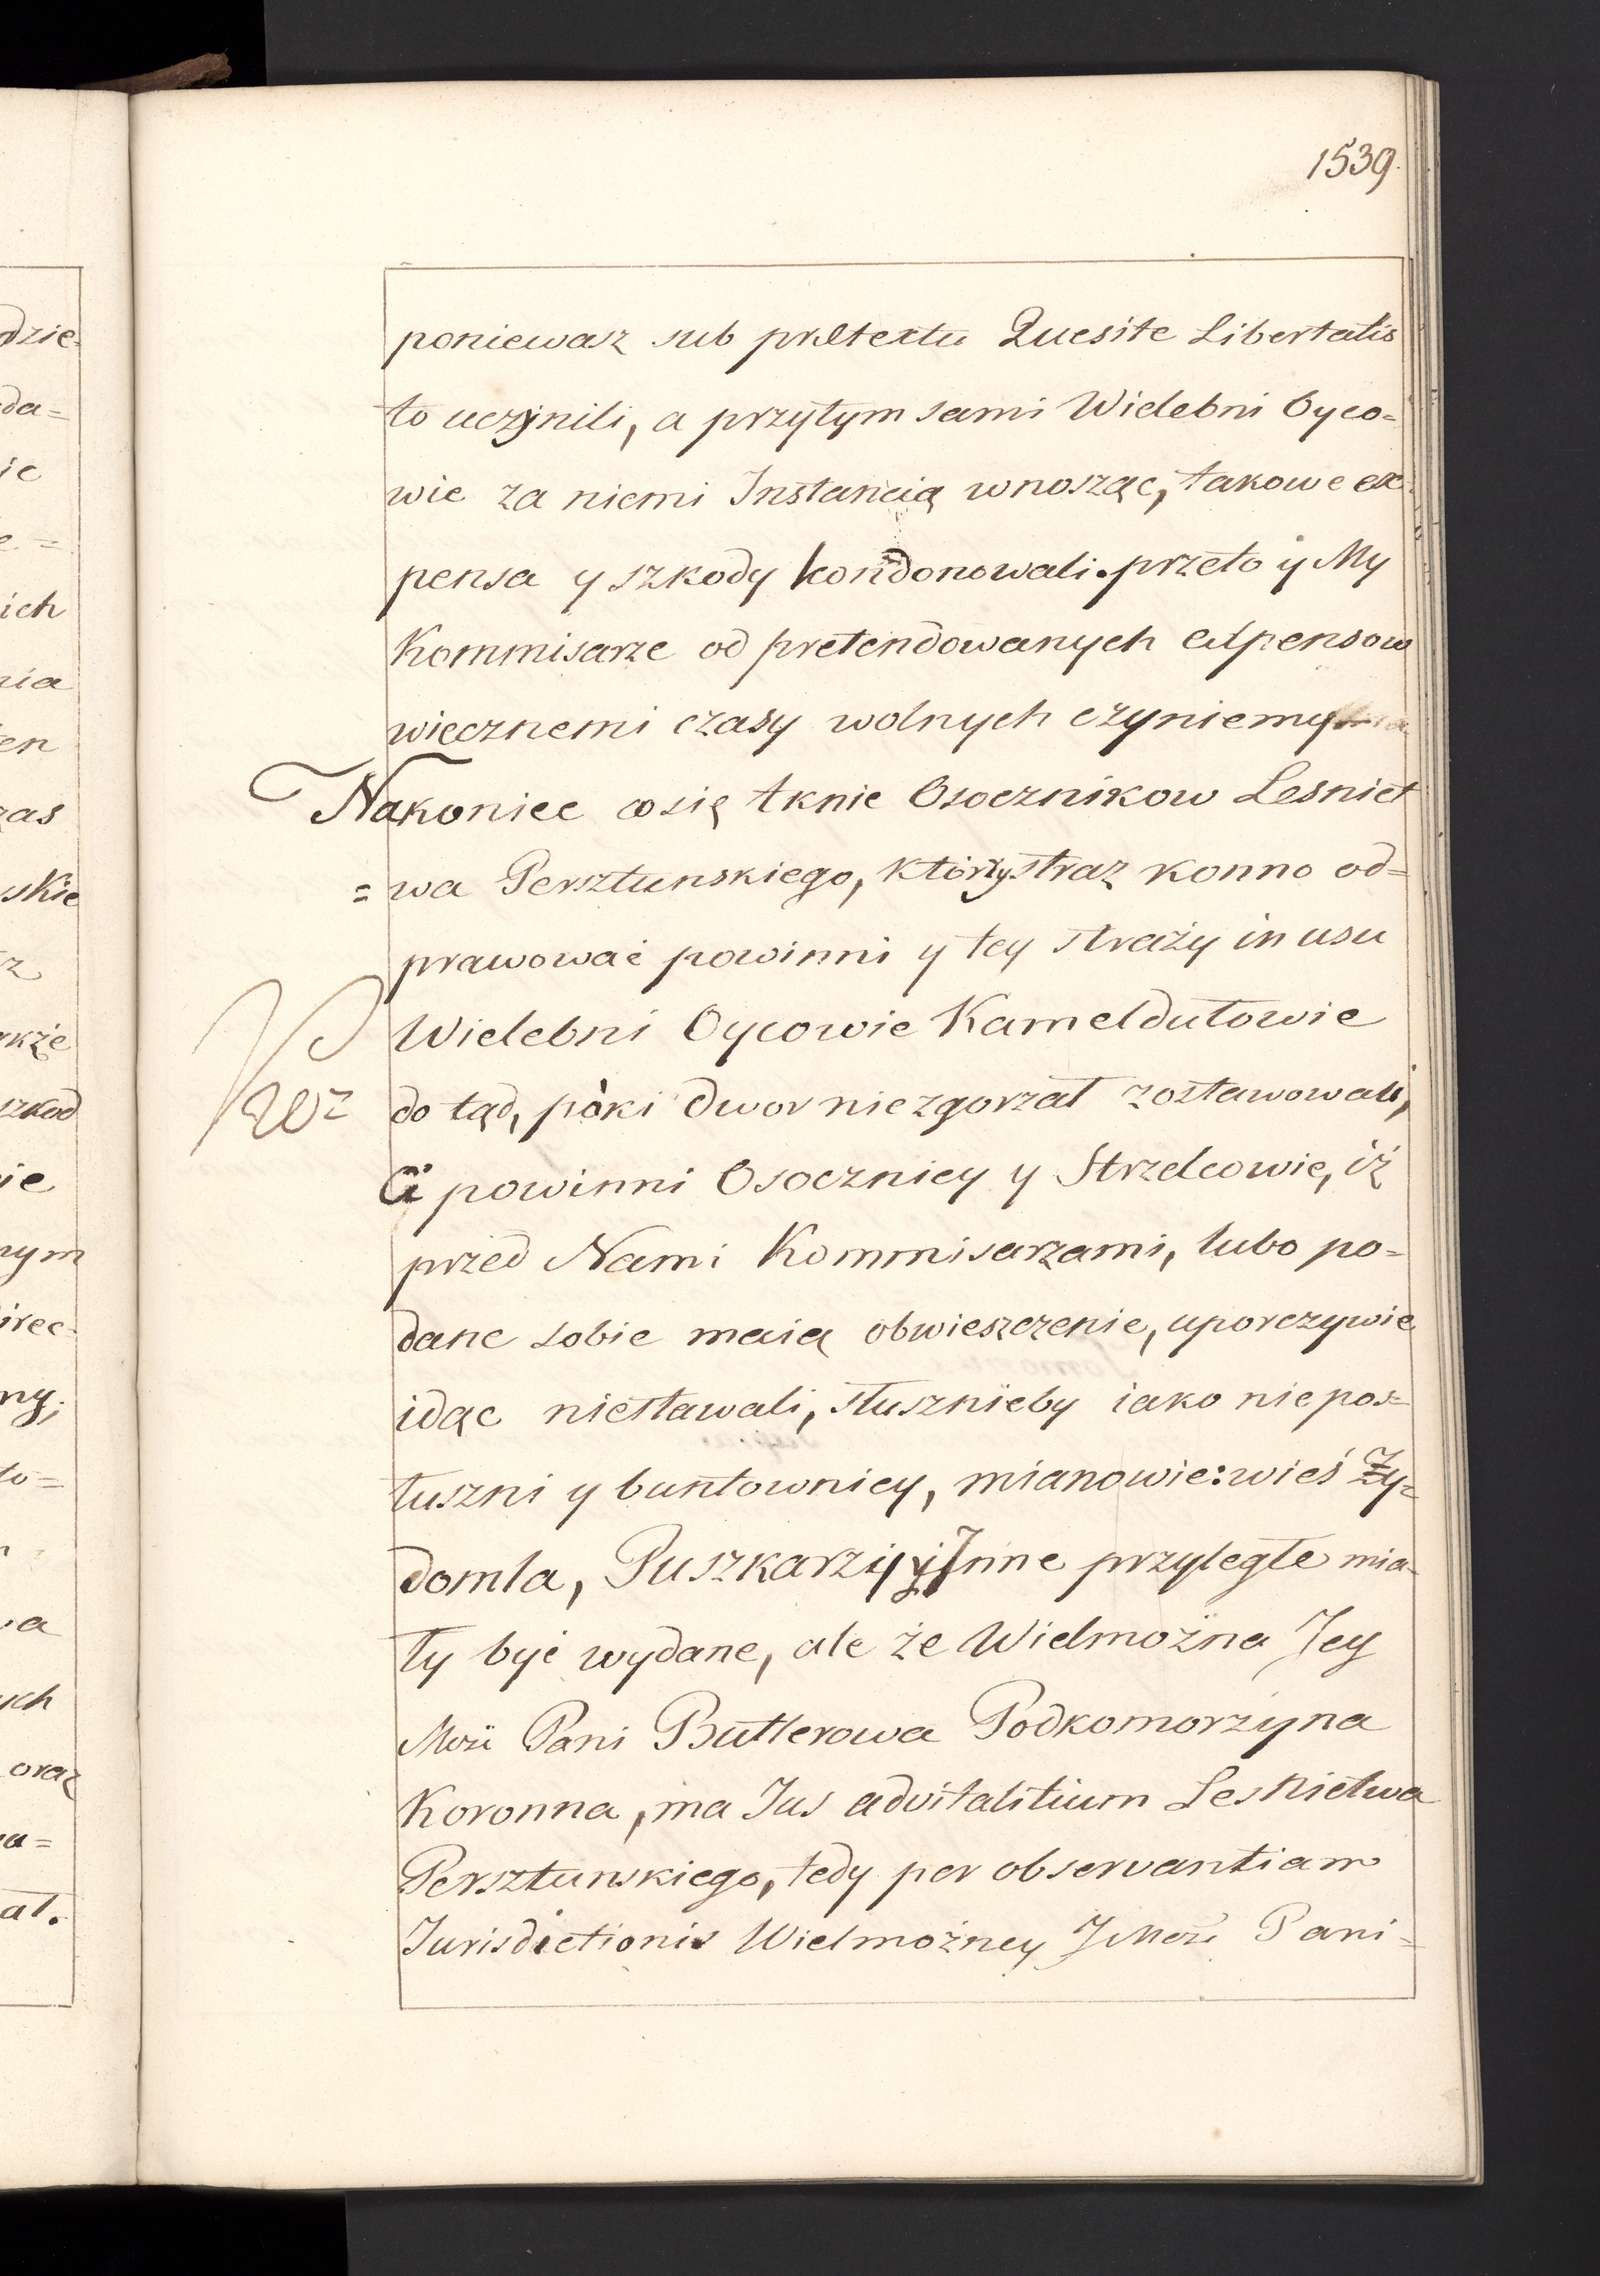 1539.
poniewasz sub prætextu Quesite Libertatis
to uczynili, a przytym sami Wielebni Oyco=
wie za niemi Instancią wnosząc, takowe ex
pensa y szkody kondonowali. przeto y My
Kommisarze od pretendowanych expensow
wiecznemi czasy wolnych czyniemy
Nakoniec co się tknie Osocznikow Lesnict
=wa Persztunskiego, którzy straz konno od=
prawować powinni y tey straży in usu
Wielebni Oycowie Kameldutowie
do tąd, póki dwor niezgorzał zostawowali,
Ci powinni Osocznicy y Strzelcowie, iż
przed Nami Kommisarzami, lubo po=
dane sobie maią obwieszczenie, uporczywie
idąc niestawali, słusznieby iako niepos=
łuszni y buntownicy, mianowie: wieś Zy=
domla, Puszkarzy y Inne przyległe mia=
ły być wydane, ale że Wielmożna Jey
Mośi Pani Butlerowa Podkomorzyna
Koronna, ma Jus advitalitium Lesnictwa
Persztunskiego, tedy per observantiam
Jurisdictionis Wielmożney J Mośi Pani=